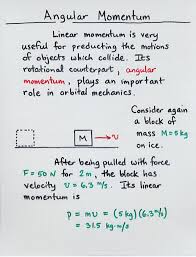 Angular Momentum
Linear momentum is very
useful for predicting the motions
of objects which collide. Its
rotational counterpart, angular
momentum, plays an important
role in orbital mechanics.
Consider again
a block of
mass M=5kg
on ice.
M → v
After being pulled with force
F = 50 N for 2m, the block has
velocity v = 6.3 m/s. Its linear
momentum is
p = mv = (5 kg)(6.3 m/s)
= 31.5 kg m/s